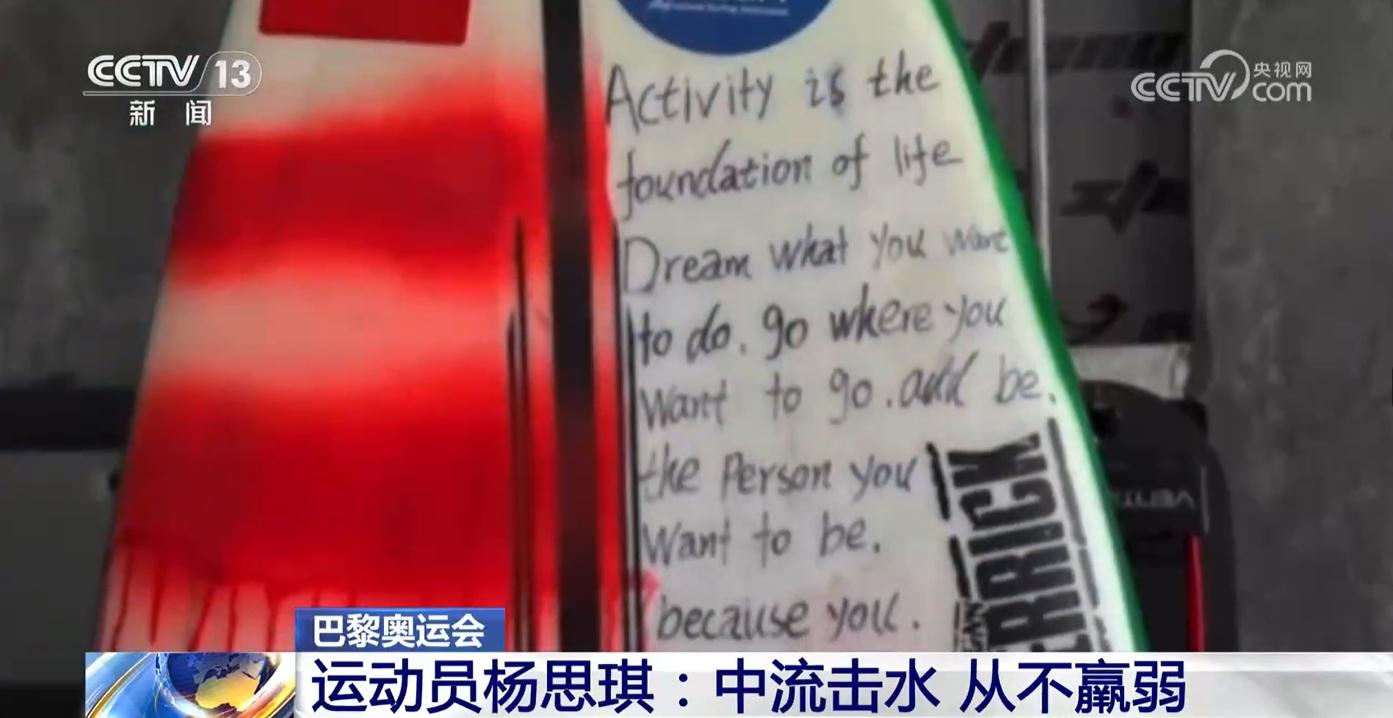 CCTV 13
新闻
CCTV 央视网
com
Activity is the
foundation of life
Dream what you want
to do. go where you
Want to go. and be.
the Person you
Want to be.
because you.
ERRICK
巴黎奥运会
运动员杨思琪：中流击水 从不羸弱